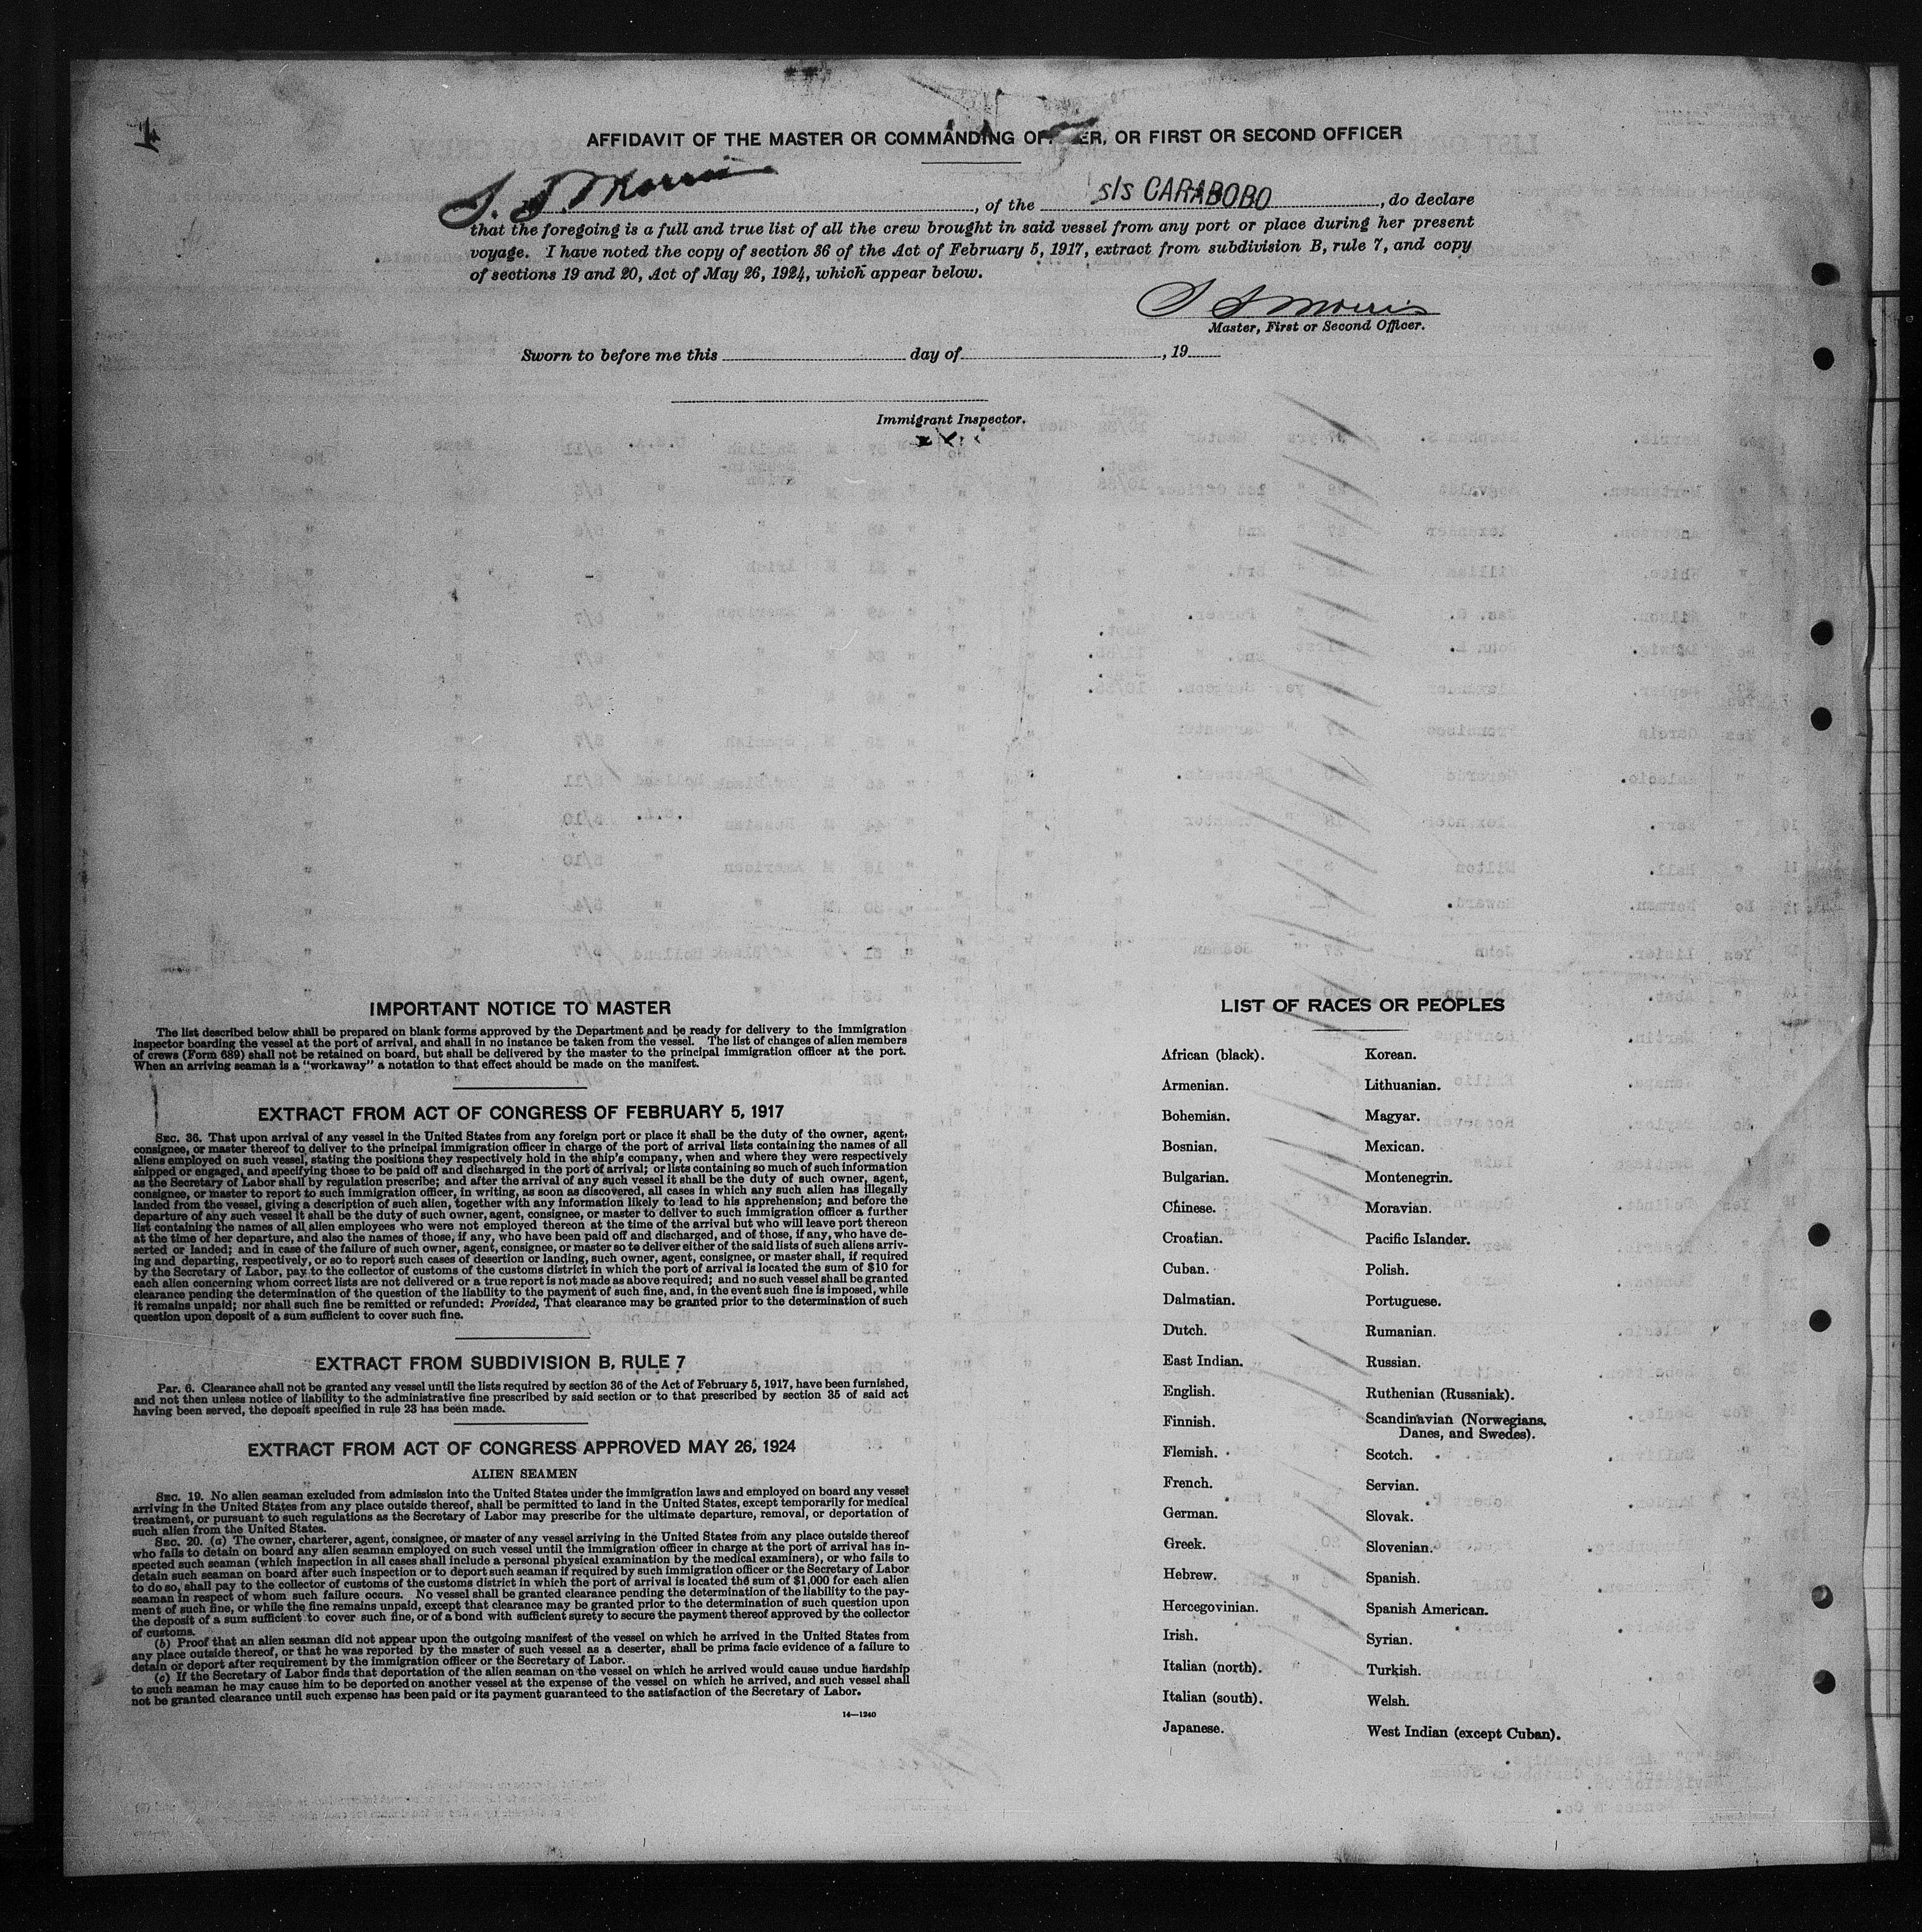 AFFIDAVIT OF THE MASTER OR COMMANDING OFFICER, OR FIRST OR SECOND OFFICER
S. S. Morris, of the s/s CARABOBO, do declare
that the foregoing is a full and true list of all the crew brought in said vessel from any port or place during her present
voyage. I have noted the copy of section 36 of the Act of February 5, 1917, extract from subdivision B, rule 7, and copy
of sections 19 and 20, Act of May 26, 1924, which appear below.
S S Morris
Master, First or Second Officer.
Sworn to before me this day of , 19
Immigrant Inspector.
IMPORTANT NOTICE TO MASTER
The list described below shall be prepared on blank forms approved by the Department and be ready for delivery to the immigration
inspector boarding the vessel at the port of arrival, and shall in no instance be taken from the vessel. The list of changes of alien members
of crews (Form 689) shall not be retained on board, but shall be delivered by the master to the principal immigration officer at the port.
When an arriving seaman is a "workaway" a notation to that effect should be made on the manifest.
EXTRACT FROM ACT OF CONGRESS OF FEBRUARY 5, 1917
SEC. 36. That upon arrival of any vessel in the United States from any foreign port or place it shall be the duty of the owner, agent,
consignee, or master thereof to deliver to the principal immigration officer in charge of the port of arrival lists containing the names of all
aliens employed on such vessel, stating the positions they respectively hold in the ship's company, when and where they were respectively
shipped or engaged, and specifying those to be paid off and discharged in the port of arrival; or lists containing so much of such information
as the Secretary of Labor shall by regulation prescribe; and after the arrival of any such vessel it shall be the duty of such owner, agent,
consignee, or master to report to such immigration officer, in writing, as soon as discovered, all cases in which any such alien has illegally
landed from the vessel, giving a description of such alien, together with any information likely to lead to his apprehension; and before the
departure of any such vessel it shall be the duty of such owner, agent, consignee, or master to deliver to such immigration officer a further
list containing the names of all alien employees who were not employed thereon at the time of the arrival but who will leave port thereon
at the time of her departure, and also the names of those, if any, who have been paid off and discharged, and of those, if any, who have de-
serted or landed; and in case of the failure of such owner, agent, consignee, or master so to deliver either of the said lists of such aliens arriv-
ing and departing, respectively, or so to report such cases of desertion or landing, such owner, agent, consignee, or master shall, if required
by the Secretary of Labor, pay to the collector of customs of the customs district in which the port of arrival is located the sum of $10 for
each alien concerning whom correct lists are not delivered or a true report is not made as above required; and no such vessel shall be granted
clearance pending the determination of the question of the liability to the payment of such fine, and, in the event such fine is imposed, while
it remains unpaid; nor shall such fine be remitted or refunded: Provided, That clearance may be granted prior to the determination of such
question upon deposit of a sum sufficient to cover such fine.
EXTRACT FROM SUBDIVISION B, RULE 7
Par. 6. Clearance shall not be granted any vessel until the lists required by section 36 of the Act of February 5, 1917, have been furnished,
and not then unless notice of liability to the administrative fine prescribed by said section or to that prescribed by section 35 of said act
having been served, the deposit specified in rule 23 has been made.
EXTRACT FROM ACT OF CONGRESS APPROVED MAY 26, 1924
ALIEN SEAMEN
SEC. 19. No alien seaman excluded from admission into the United States under the immigration laws and employed on board any vessel
arriving in the United States from any place outside thereof, shall be permitted to land in the United States, except temporarily for medical
treatment, or pursuant to such regulations as the Secretary of Labor may prescribe for the ultimate departure, removal, or deportation of
such alien from the United States.
SEC. 20. (a) The owner, charterer, agent, consignee, or master of any vessel arriving in the United States from any place outside thereof
who fails to detain on board any alien seaman employed on such vessel until the immigration officer in charge at the port of arrival has in-
spected such seaman (which inspection in all cases shall include a personal physical examination by the medical examiners), or who fails to
detain such seaman on board after such inspection or to deport such seaman if required by such immigration officer or the Secretary of Labor
to do so, shall pay to the collector of customs of the customs district in which the port of arrival is located the sum of $1,000 for each alien
seaman in respect of whom such failure occurs. No vessel shall be granted clearance pending the determination of the liability to the pay-
ment of such fine, or while the fine remains unpaid, except that clearance may be granted prior to the determination of such question upon
the deposit of a sum sufficient to cover such fine, or of a bond with sufficient surety to secure the payment thereof approved by the collector
of customs.
(b) Proof that an alien seaman did not appear upon the outgoing manifest of the vessel on which he arrived in the United States from
any place outside thereof, or that he was reported by the master of such vessel as a deserter, shall be prima facie evidence of a failure to
detain or deport after requirement by the immigration officer or the Secretary of Labor.
(c) If the Secretary of Labor finds that deportation of the alien seaman on the vessel on which he arrived would cause undue hardship
to such seaman he may cause him to be deported on another vessel at the expense of the vessel on which he arrived, and such vessel shall
not be granted clearance until such expense has been paid or its payment guaranteed to the satisfaction of the Secretary of Labor.
14—1240
LIST OF RACES OR PEOPLES
African (black).
Armenian.
Bohemian.
Bosnian.
Bulgarian.
Chinese.
Croatian.
Cuban.
Dalmatian.
Dutch.
East Indian.
English.
Finnish.
Flemish.
French.
German.
Greek.
Hebrew.
Hercegovinian.
Irish.
Italian (north).
Italian (south).
Japanese.
Korean.
Lithuanian.
Magyar.
Mexican.
Montenegrin.
Moravian.
Pacific Islander.
Polish.
Portuguese.
Rumanian.
Russian.
Ruthenian (Russniak).
Scandinavian (Norwegians,
Danes, and Swedes).
Scotch.
Servian.
Slovak.
Slovenian.
Spanish.
Spanish American.
Syrian.
Turkish.
Welsh.
West Indian (except Cuban).